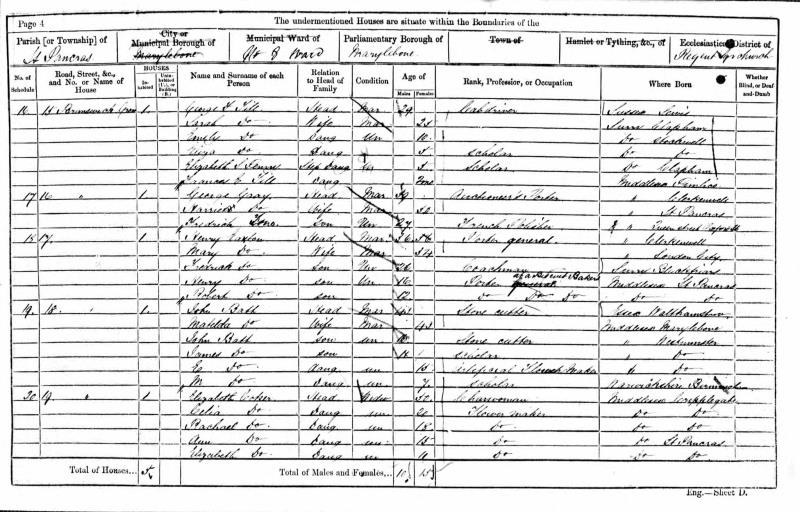 Page 4
The undermentioned Houses are situate within the Boundaries of the
Parish [or Township] of City or Municipal Borough of Municipal Ward of Parliamentary Borough of Town of Hamlet or Tything, &c., of Ecclesiastical District of
St Pancras Marylebone Ward Marylebone Regent Sq church
No. of Schedule Road, Street, &c., and No. or Name of House HOUSES Inhabited Uninhabited (U.), or Building (B.) Name and Surname of each Person Relation to Head of Family Condition Age of Males Females Rank, Profession, or Occupation Where Born Whether Blind, or Deaf-and-Dumb
16 15 Brunswick 1 George Till Head Mar 29 Cab driver Sussex Lewes
Sarah Do Wife Mar Surry Clapham
Emily Do Daug Un 10 Do Stockwell
Eliza Do Daug 5 scholar Do Do
Elizabeth Step Daug Scholar Do Clapham
Frances E Till Daug Middlesex Pimlico
17 16 " 1 George Gary Head Mar 59 Auctioneer's Porter " Clerkenwell
Harriet Do Wife Mar 52 " St Pancras
Fredrick Son Un 27 French Polisher " Queen
18 17 " 1 Henry Head Mar 56 Porter general " Clerkenwell
Mary Do Wife Mar 54 " London City
Fredrick Do son Un 26 Coachman Surry Blackfriars
Henry Do son Un 16 Porter Biscuit Bakers Middlesex St Pancras
Robert Do son 12 Do Do Do Do Do
19 18 " 1 John Bath Head Mar 42 Stone cutter Essex Walthamstow
Matilda Do Wife Mar 42 Middlesex Marylebone
John Bath son un 18 Stone cutter " Westminster
James Do son 11 scholar " Do
Do Daug un 15 Artificial Flower Maker " Do
M Do Daug un 7 scholar Warwickshire Birmingham
20 19 " 1 Elizabeth Head Widow 50 Charwoman Middlesex Cripplegate
Celia Do Daug un 20 Flower maker Do Do
Rachael Do Daug un 18 Do Do Do
Ann Do Daug un 15 Do Do St Pancras
Elizabeth Do Daug un 11 Do Do Do
Total of Houses... 5 Total of Males and Females... 10 15
Eng.—Sheet D.